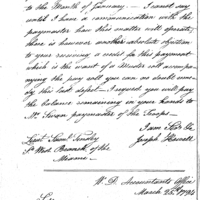 to the Month of January — I cannot say
until I have a communication with the
paymaster how this matter will operate,
there is however another absolute objection
to your receiving a credit for this payment
which is the want of a Muster roll accompa-
nying the pay roll you can no doubt remedy
this last defect — I request you will pay
the balance remaining in your hands to
Mr. Swan paymaster of the Troops —
I am Sir &c
Joseph Howell
Lieut Saml Tinsley
3d Sub
W. D. Accountants Office
March 25th 1794
Sir